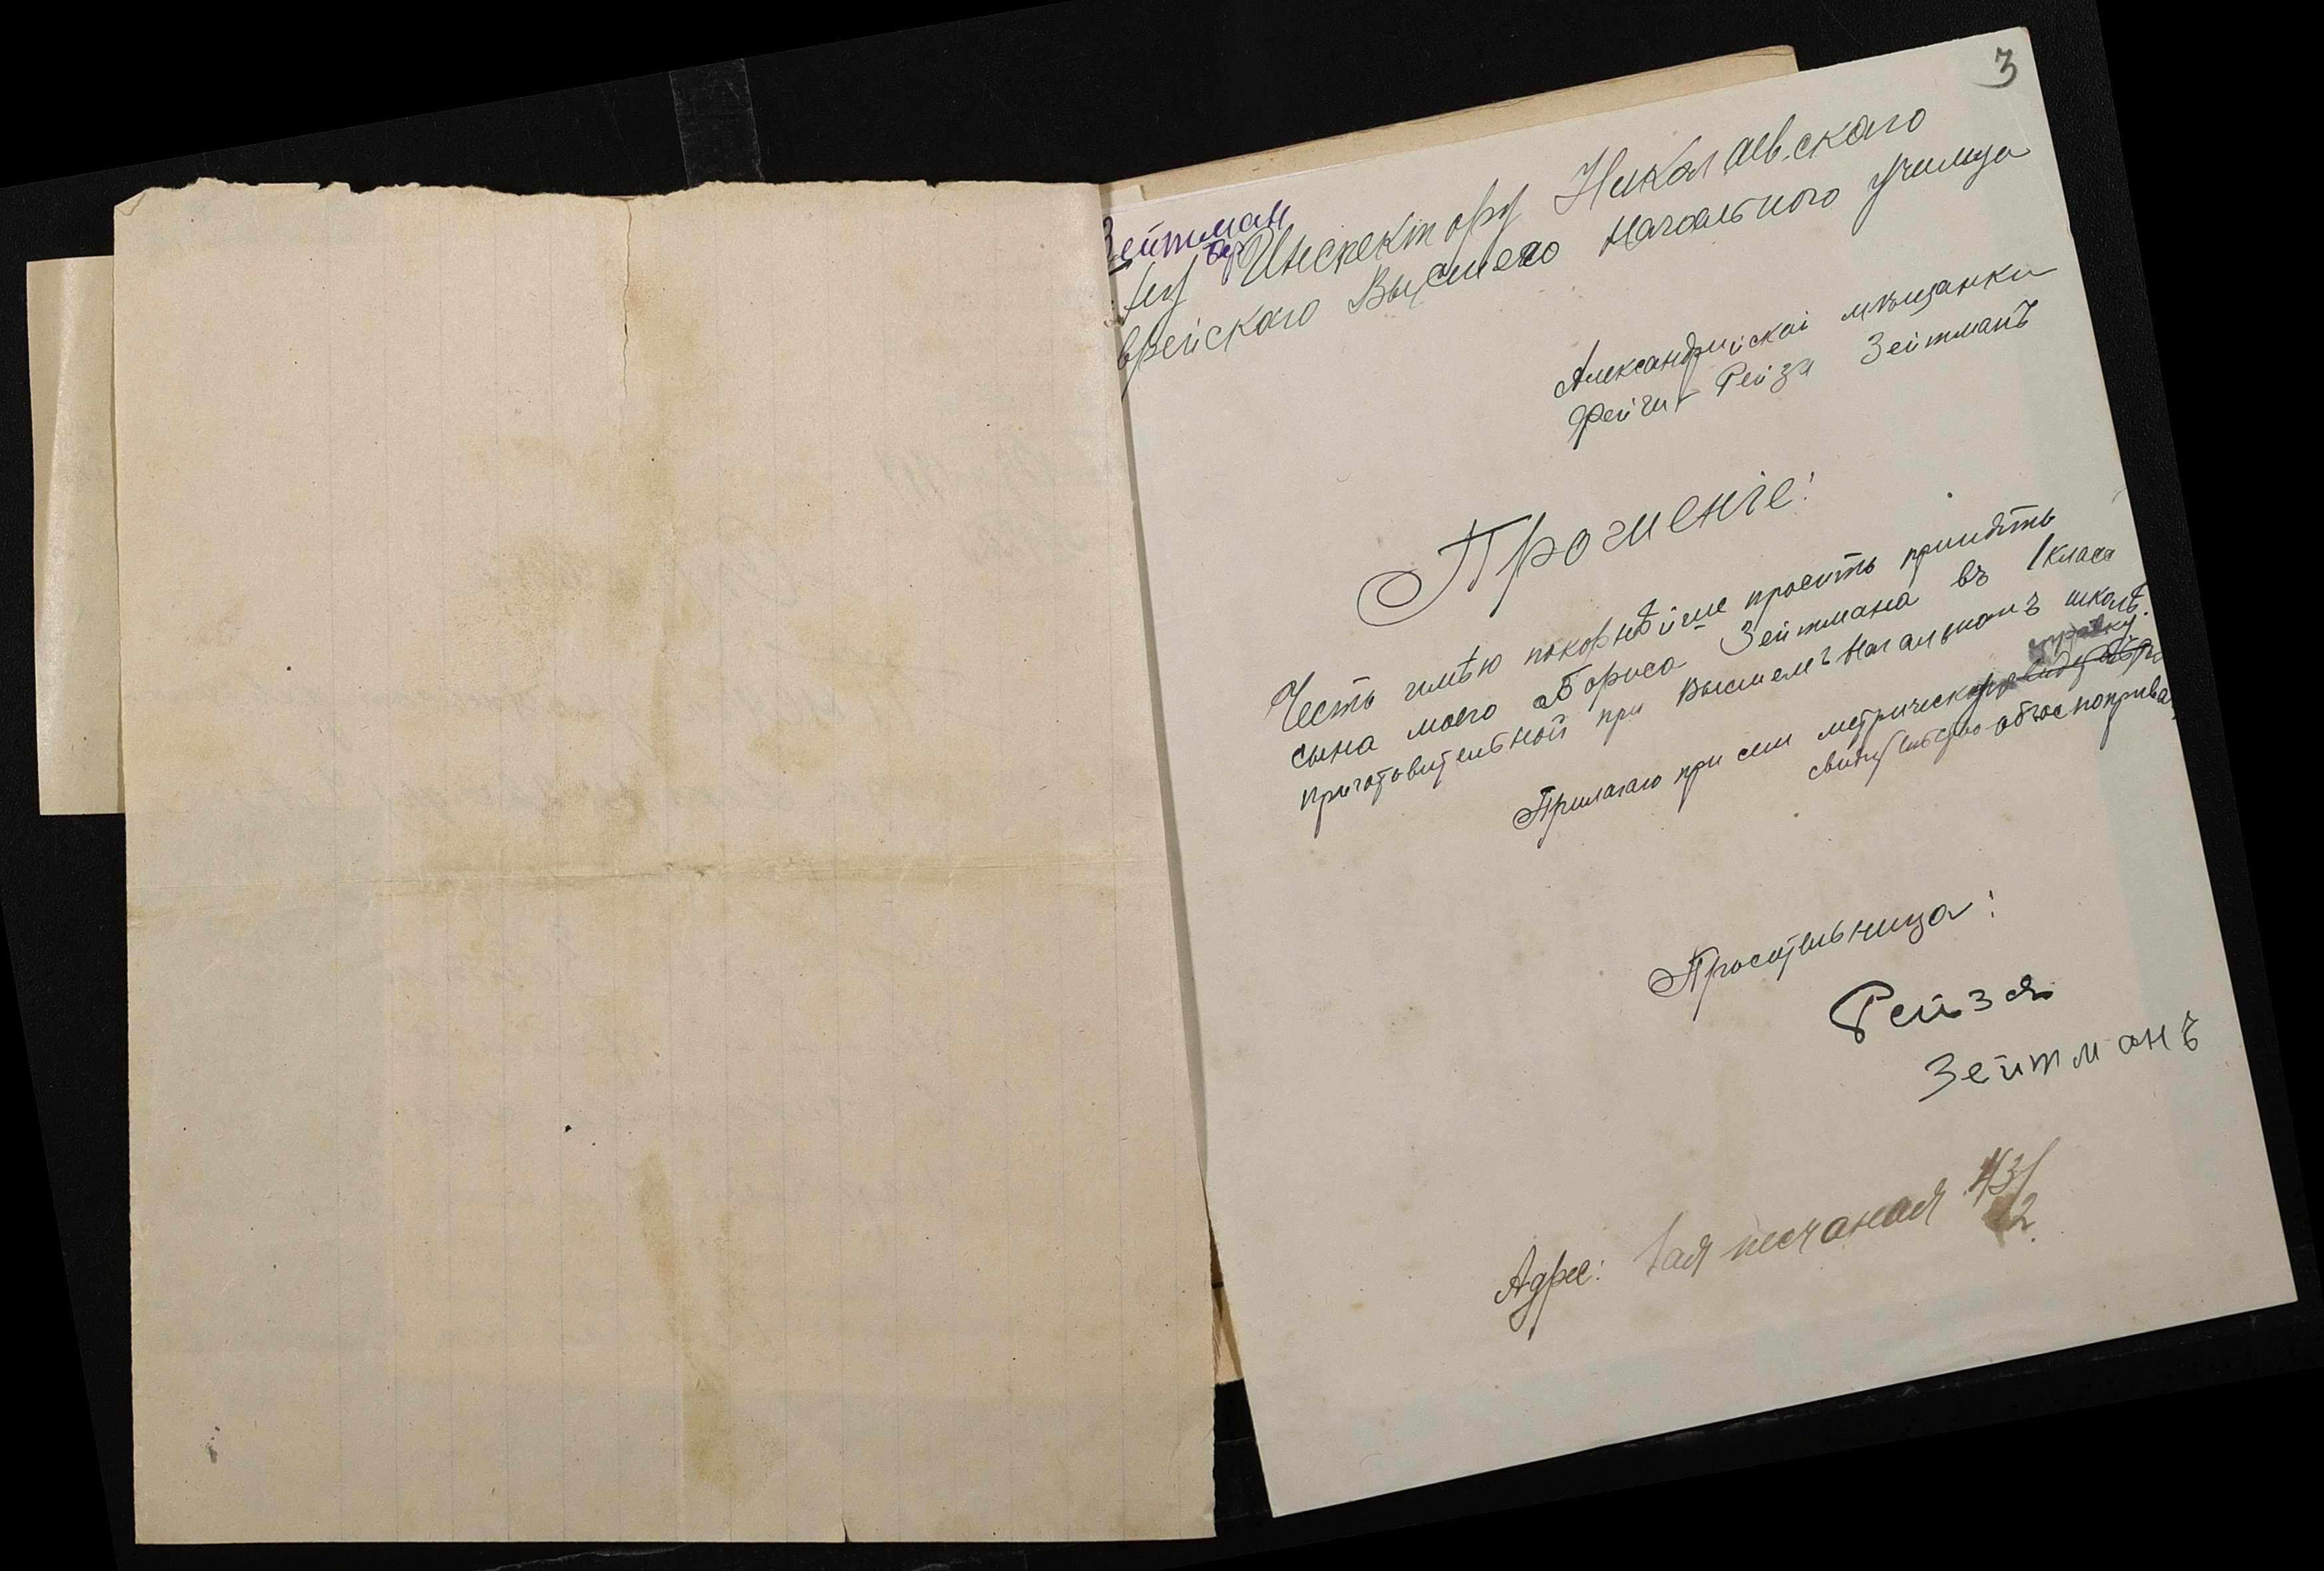 3
Зейтман
Инспектору Николаевскаго
врейскаго Высшего Начальнаго училища
Александрийской мѣщанки
Фейги-Рейзи Зейтманъ
Прошеніе:
Честь имѣю покорнѣйше просить принять
сына моего Бориса Зейтмана въ 1 класа
приготовительной при Высшемъ Начальномъ школѣ.
справку.
Прилагаю при сем метрическую
свидѣтельство
Просительница:
Рейзя
Зейтманъ
Адрес: 1ая песчаная 43/
12.